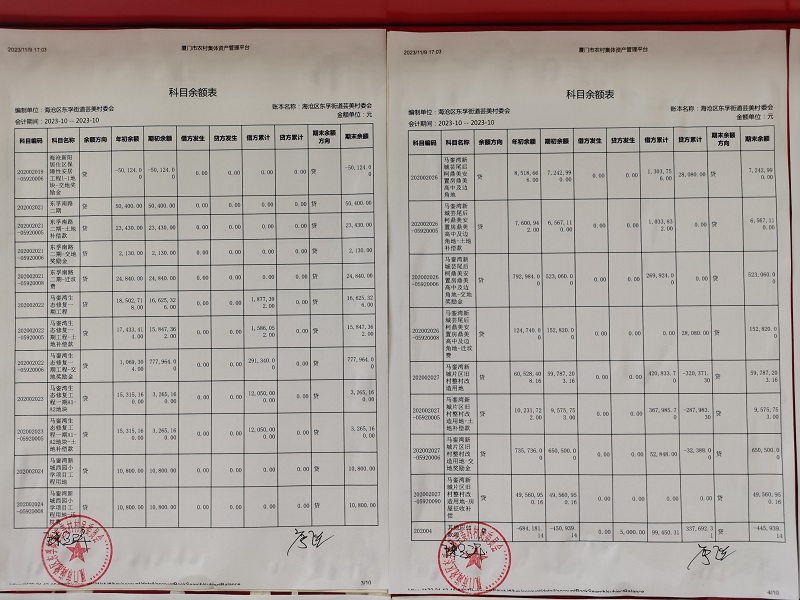 2023/11/9 17:03
厦门市农村集体资产管理平台
科目余额表
编制单位：海沧区东孚街道芸美村委会
账本名称：海沧区东孚街道芸美村委会
会计期间：2023-10 -- 2023-10
金额单位：元
科目编码 科目名称 余额方向 年初余额 期初余额 借方发生 贷方发生 借方累计 贷方累计 期末余额方向 期末余额
202002019-05920006 海沧新阳居住区保障性安居工程1-1地块-交地奖励金 贷 -50,124.00 -50,124.00 0.00 0.00 0.00 0.00 贷 -50,124.00
202002021 东孚南路二期 贷 50,400.00 50,400.00 0.00 0.00 0.00 0.00 贷 50,400.00
202002021-05920005 东孚南路二期-土地补偿款 贷 23,430.00 23,430.00 0.00 0.00 0.00 0.00 贷 23,430.00
202002021-05920006 东孚南路二期-交地奖励金 贷 2,130.00 2,130.00 0.00 0.00 0.00 0.00 贷 2,130.00
202002021-05920008 东孚南路二期-迁坟费 贷 24,840.00 24,840.00 0.00 0.00 0.00 0.00 贷 24,840.00
202002022 马銮湾生态修复一期工程 贷 18,502,718.00 16,625,326.00 0.00 0.00 1,877,392.00 0.00 贷 16,625,326.00
202002022-05920005 马銮湾生态修复一期工程-土地补偿款 贷 17,433,414.00 15,847,362.00 0.00 0.00 1,586,052.00 0.00 贷 15,847,362.00
202002022-05920006 马銮湾生态修复一期工程-交地奖励金 贷 1,069,304.00 777,964.00 0.00 0.00 291,340.00 0.00 贷 777,964.00
202002023 马銮湾生态修复工程一期A1-A2地块 贷 15,315,160.00 3,265,160.00 0.00 0.00 12,050,000.00 0.00 贷 3,265,160.00
202002023-05920005 马銮湾生态修复工程一期A1-A2地块-土地补偿款 贷 15,315,160.00 3,265,160.00 0.00 0.00 12,050,000.00 0.00 贷 3,265,160.00
202002024 马銮湾新城西园小学项目工程用地 贷 10,800.00 10,800.00 0.00 0.00 0.00 0.00 贷 10,800.00
202002024-05920008 马銮湾新城西园小学项目工程用地 贷 10,800.00 10,800.00 0.00 0.00 0.00 0.00 贷 10,800.00
3/10
2023/11/9 17:03
厦门市农村集体资产管理平台
科目余额表
编制单位：海沧区东孚街道芸美村委会
账本名称：海沧区东孚街道芸美村委会
会计期间：2023-10 -- 2023-10
金额单位：元
科目编码 科目名称 余额方向 年初余额 期初余额 借方发生 贷方发生 借方累计 贷方累计 期末余额方向 期末余额
202002026 马銮湾新城芸尾后柯鼎美安置房鼎美高中及边角地 贷 8,518,666.00 7,242,990.00 0.00 0.00 1,303,756.00 28,080.00 贷 7,242,990.00
202002026-05920005 马銮湾新城芸尾后柯鼎美安置房鼎美高中及边角地-土地补偿款 贷 7,600,942.00 6,567,110.00 0.00 0.00 1,033,832.00 0.00 贷 6,567,110.00
202002026-05920006 马銮湾新城芸尾后柯鼎美安置房鼎美高中及边角地-交地奖励金 贷 792,984.00 523,060.00 0.00 0.00 269,924.00 0.00 贷 523,060.00
202002026-05920008 马銮湾新城芸尾后柯鼎美安置房鼎美高中及边角地-迁坟费 贷 124,740.00 152,820.00 0.00 0.00 0.00 28,080.00 贷 152,820.00
202002027 马銮湾新城片区旧村整村改造用地 贷 60,528,408.16 59,787,203.16 0.00 0.00 420,833.70 -320,371.30 贷 59,787,203.16
202002027-05920005 马銮湾新城片区旧村整村改造用地-土地补偿款 贷 10,231,722.00 9,575,753.00 0.00 0.00 367,985.70 -287,983.30 贷 9,575,753.00
202002027-05920006 马銮湾新城片区旧村整村改造用地-交地奖励金 贷 735,736.00 650,500.00 0.00 0.00 52,848.00 -32,388.00 贷 650,500.00
202002027-05920090 马銮湾新城片区旧村整村改造用地-房屋征收补偿 贷 49,560,950.16 49,560,950.16 0.00 0.00 0.00 0.00 贷 49,560,950.16
202004 其他应付款项 贷 -684,181.14 -450,939.14 0.00 5,000.00 99,450.31 337,692.31 贷 -445,939.14
4/10